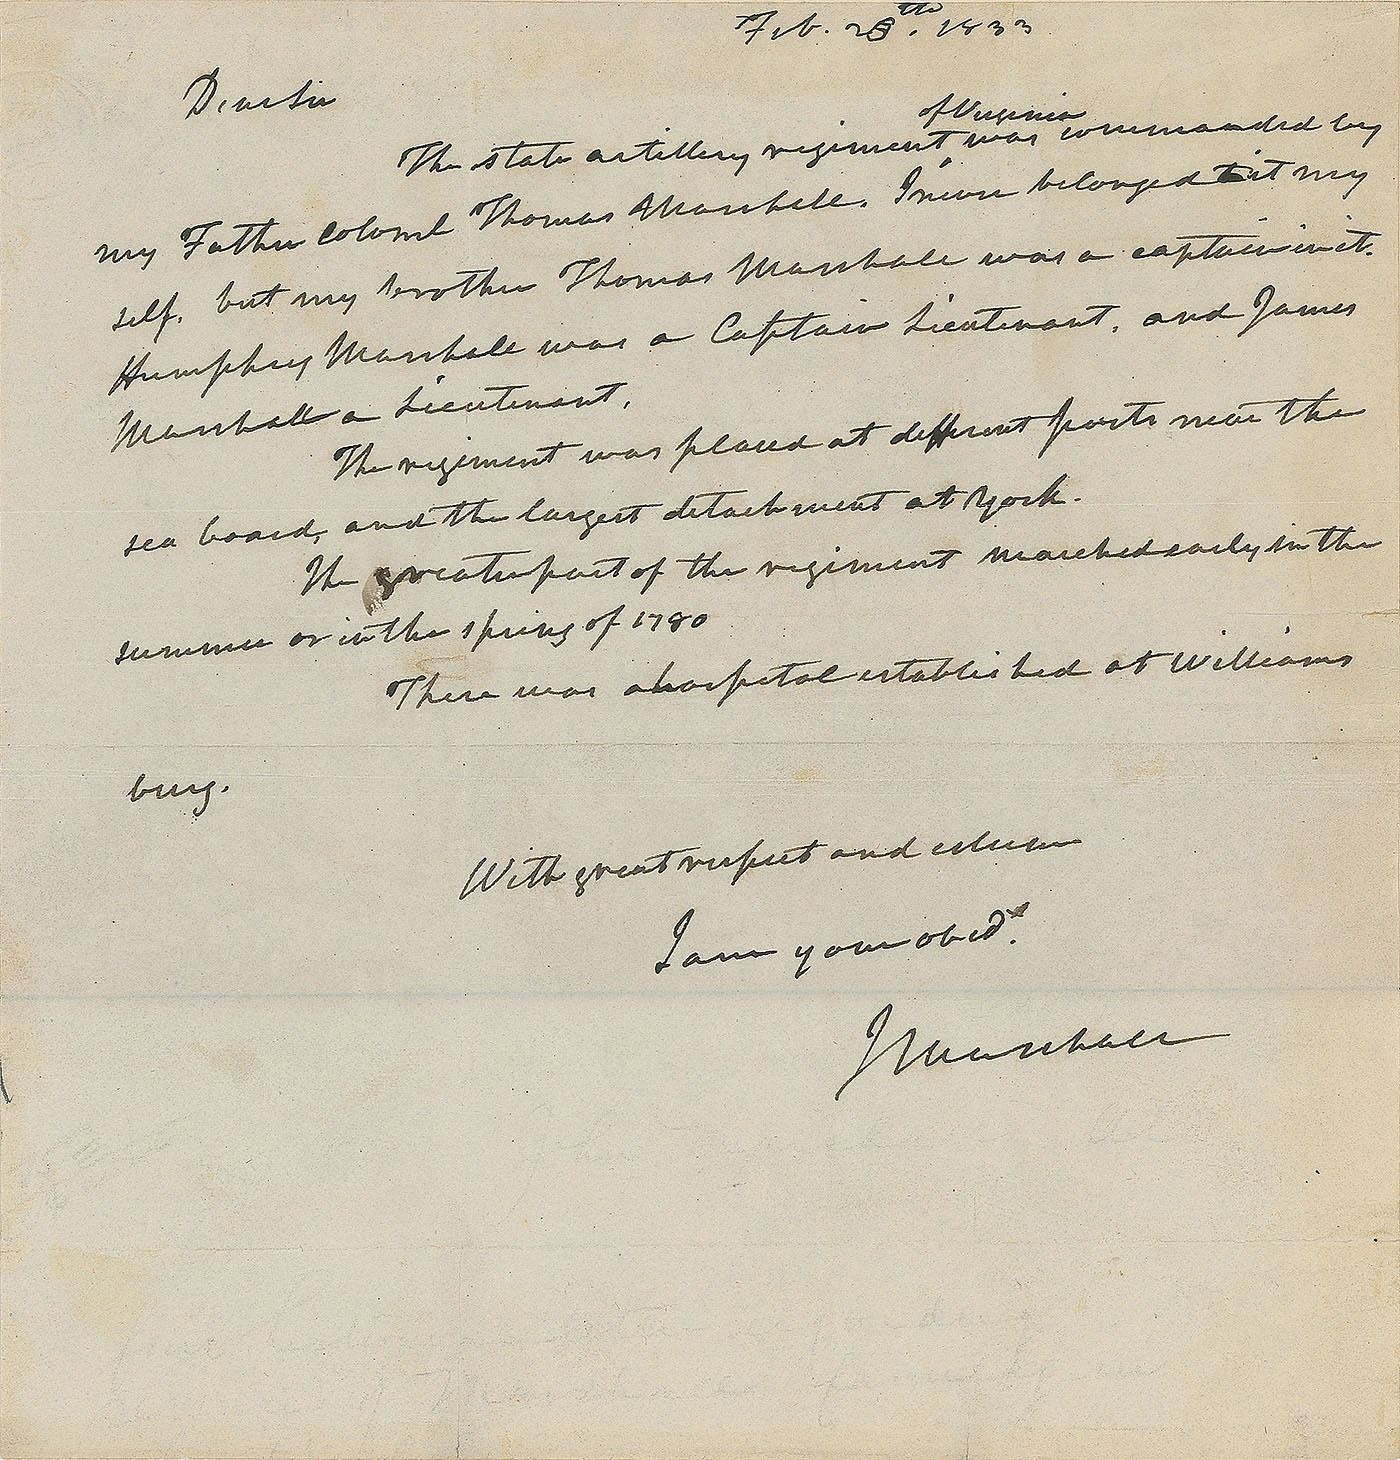 Feb. 28th. 1833
Dear Sir
of Virginia
The state artillery regiment was commanded by
my Father Colonel Thomas Marshall. I never belonged to it my
self, but my brother Thomas Marshall was a captain in it.
Humphrey Marshall was a Captain Lieutenant, and James
Marshall a Lieutenant.
The regiment was placed at different posts near the
sea board, and the largest detachment at York.
The greater part of the regiment marched early in the
summer or in the spring of 1780
There was a hospital established at Williams
burg.
With great respect and esteem
I am your obedt.
J Marshall